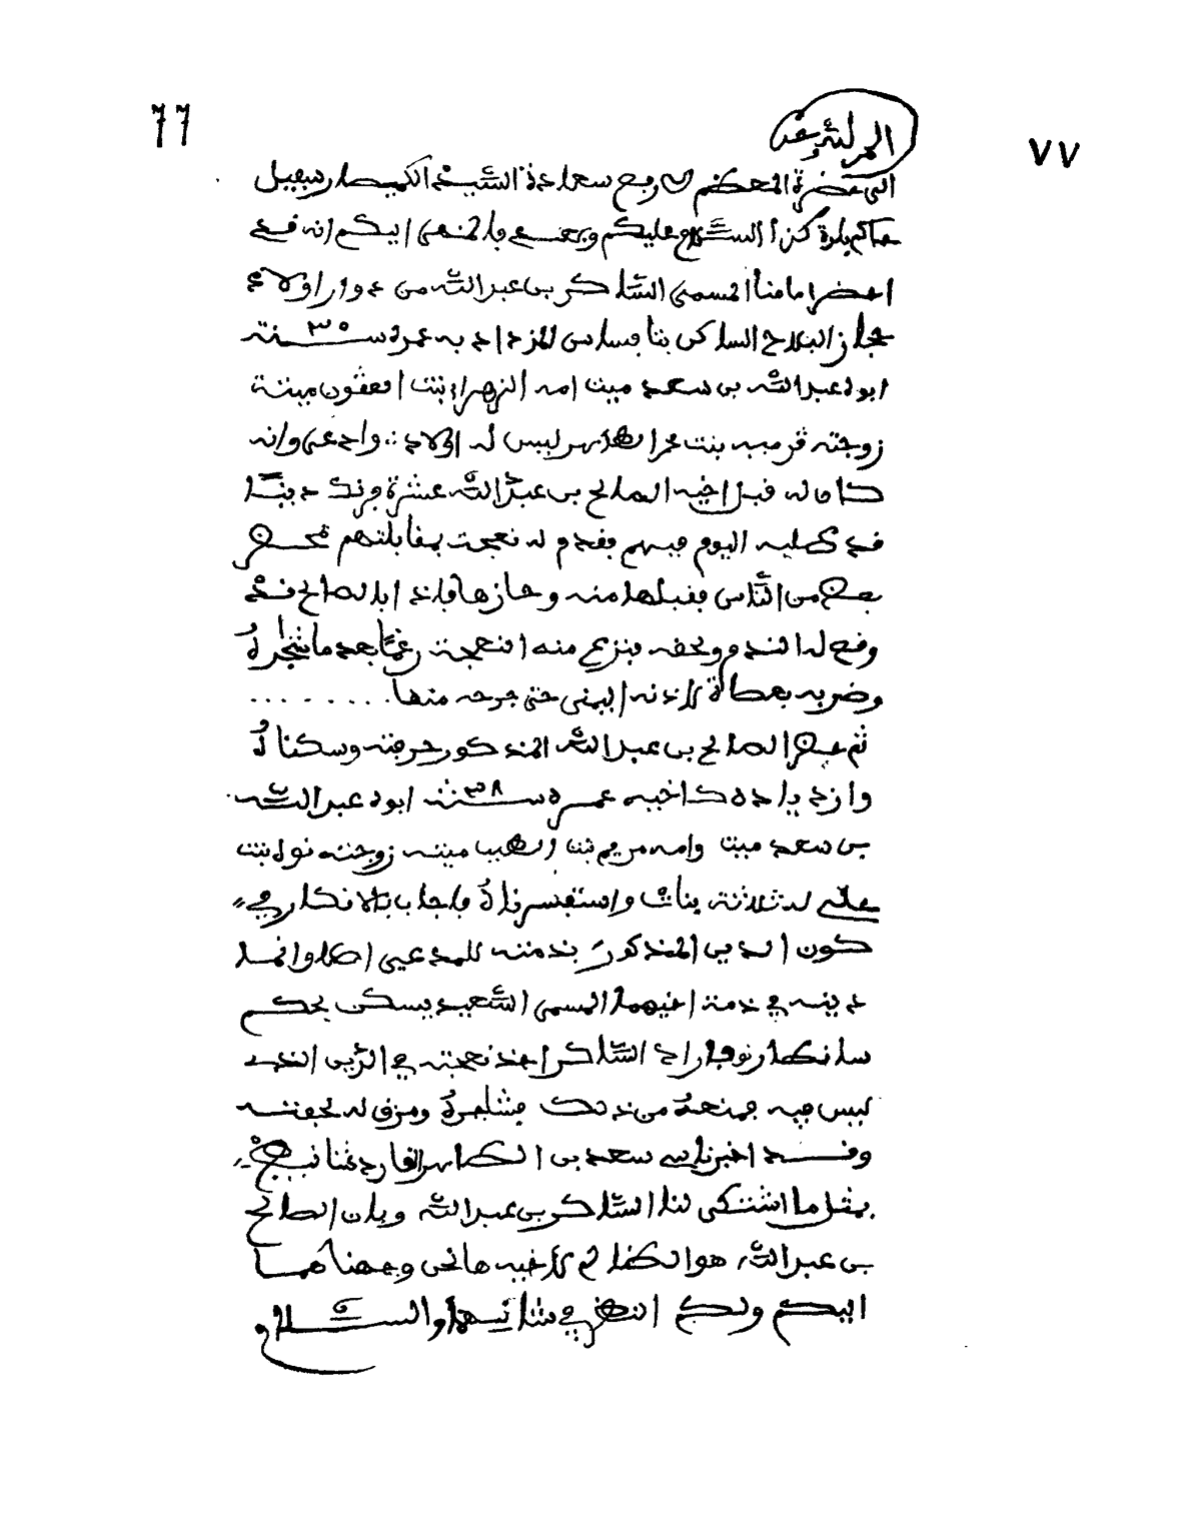 77
٧٧
الحمد لله وحده
الى حضرة المعظم الارفع سعادة الشيخ الكبيطار
حاكم بلدة السلام عليكم وبعد فالمنهى اليكم انه قد
احضر امامنا المسمى الشاكر بن عبد الله من دوار اولاد
الفلاح الساكن بنا المزداد به عمره ٣٥ سنة
ابوه عبد الله بن سعد ميت امه الزهراء بنت ميتة
زوجته بنت ليس له اولاد : وادعى وانه
كان له قبل اخيه الصالح بن عبد الله عشرة فرنك دينا
قد طلبه اليوم فيهم فقدم له نعجة بمقابلتهم بمحضر
بعض من الناس فقبلها منه وحازها فاذا بالصالح قد
وقع له الندم ولحقه فنزع منه النعجة رغما بعد ما تشاجره
وضربه بعصاة لاذنه اليمنى حتى جرحه منها . . . . . . . .
ثم حضر الصالح بن عبد الله المذكور حرفته وسكناه
وازديا ده كاخيه عمره ٣٨ سنة ابوه عبد الله
بن سعد ميت وامه مريم بنت ميتة زوجته بنت
علي له ثلاثة بنات واستفسرناه فاجاب بالانكار في
كون الدين المذكور بذمته للمدعي اصلا وانما
دينه في ذمة اخيهما المسمى السعيد يسكن بحكم
الشاكر اخذ نعجته في الدين الذي
ليس فيه فمنعه من ذلك فشاجره ومزق له
وقد اخبرنا سي سعد بن الطاهر
بمثل ما اشتكى لنا الشاكر بن عبد الله وبان الصالح
بن عبد الله هو الظالم لاخيه وجهناهما
اليكم ولكم النظر في شانيهما والسلام